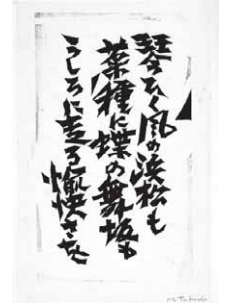 琴ひく風の浜松も
菜種に蝶の舞坂も
うしろに走る愉快さを